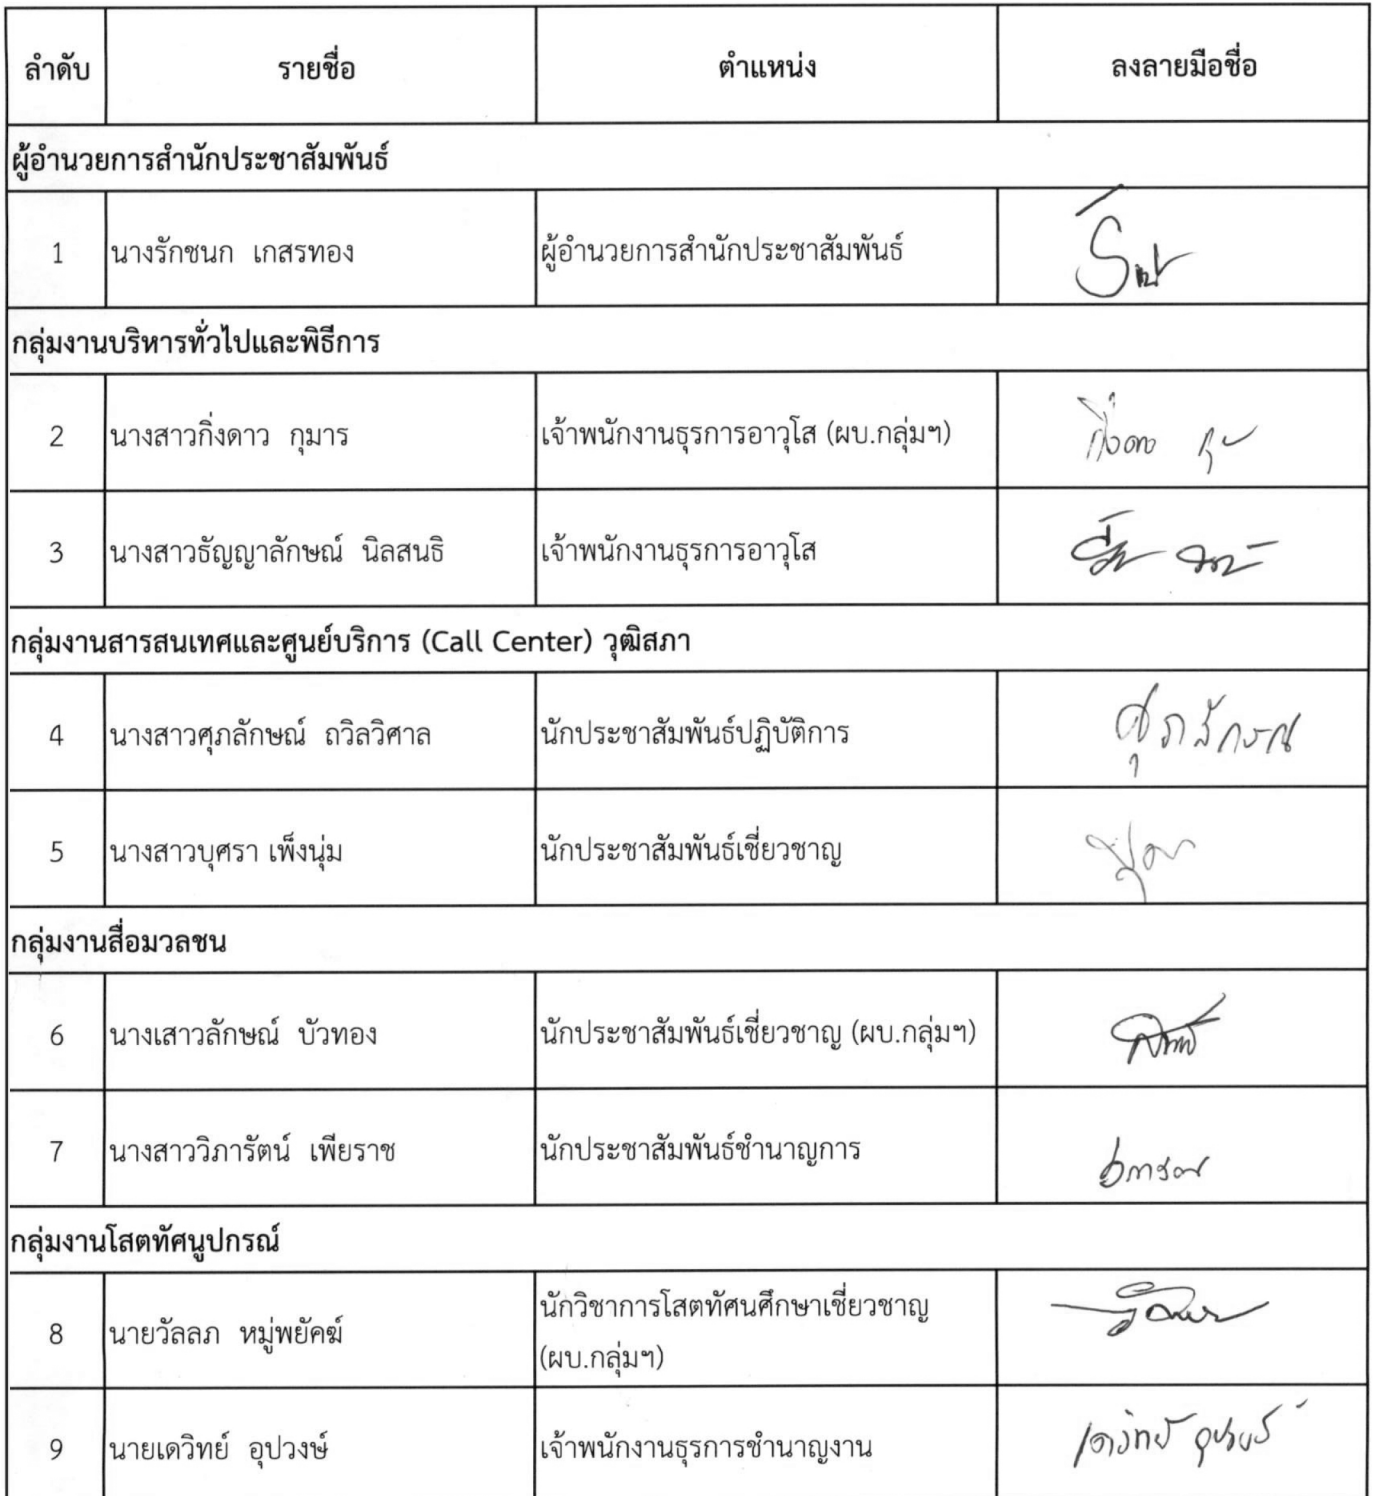 ลำดับ รายชื่อ ตำแหน่ง ลงลายมือชื่อ
ผู้อำนวยการสำนักประชาสัมพันธ์
1 นางรักชนก เกสรทอง ผู้อำนวยการสำนักประชาสัมพันธ์
กลุ่มงานบริหารทั่วไปและพิธีการ
2 นางสาวกิ่งดาว กุมาร เจ้าพนักงานธุรการอาวุโส (ผบ.กลุ่มฯ) กิ่งดาว
3 นางสาวธัญญาลักษณ์ นิลสนธิ เจ้าพนักงานธุรการอาวุโส
กลุ่มงานสารสนเทศและศูนย์บริการ (Call Center) วุฒิสภา
4 นางสาวศุภลักษณ์ ถวิลวิศาล นักประชาสัมพันธ์ปฏิบัติการ ศุภลักษณ์
5 นางสาวบุศรา เพ็งนุ่ม นักประชาสัมพันธ์เชี่ยวชาญ
กลุ่มงานสื่อมวลชน
6 นางเสาวลักษณ์ บัวทอง นักประชาสัมพันธ์เชี่ยวชาญ (ผบ.กลุ่มฯ)
7 นางสาววิภารัตน์ เพียราช นักประชาสัมพันธ์ชำนาญการ
กลุ่มงานโสตทัศนูปกรณ์
8 นายวัลลภ หมู่พยัคฆ์ นักวิชาการโสตทัศนศึกษาเชี่ยวชาญ
(ผบ.กลุ่มฯ)
9 นายเดวิทย์ อุปวงษ์ เจ้าพนักงานธุรการชำนาญงาน เดวิทย์ อุปวงษ์